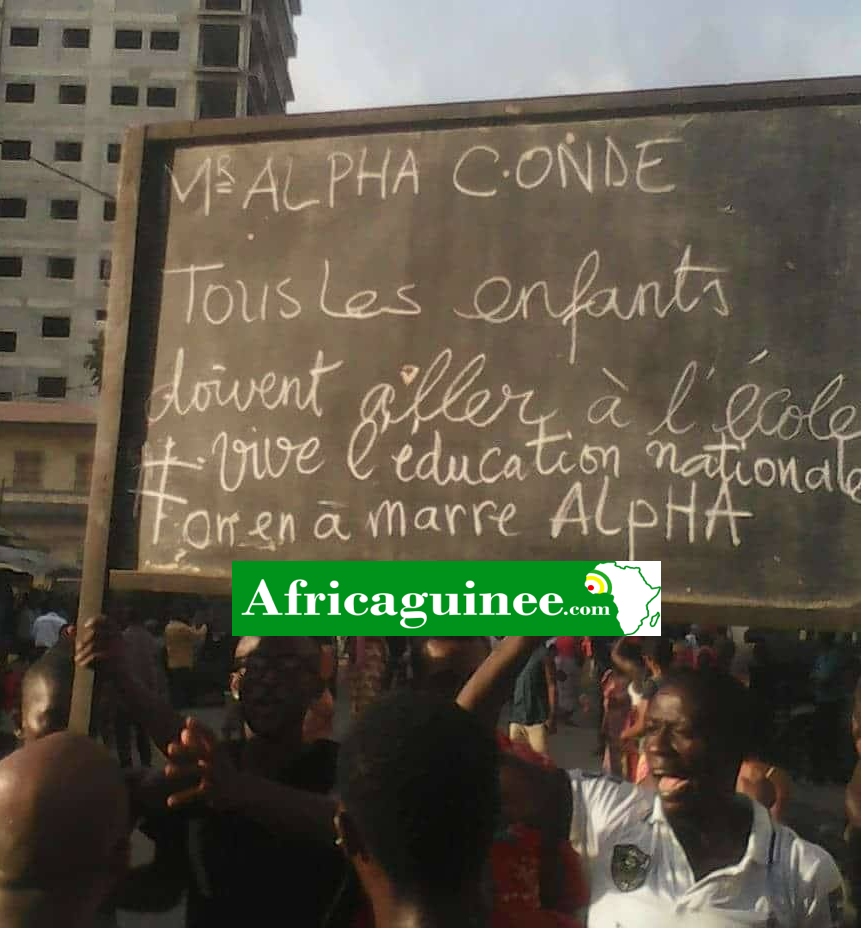 MR ALPHA C.ONDE
Tous Les enfants
doivent aller à l'école
# vive l'éducation nationale
on en a marre ALpHA
Africaguinee.com